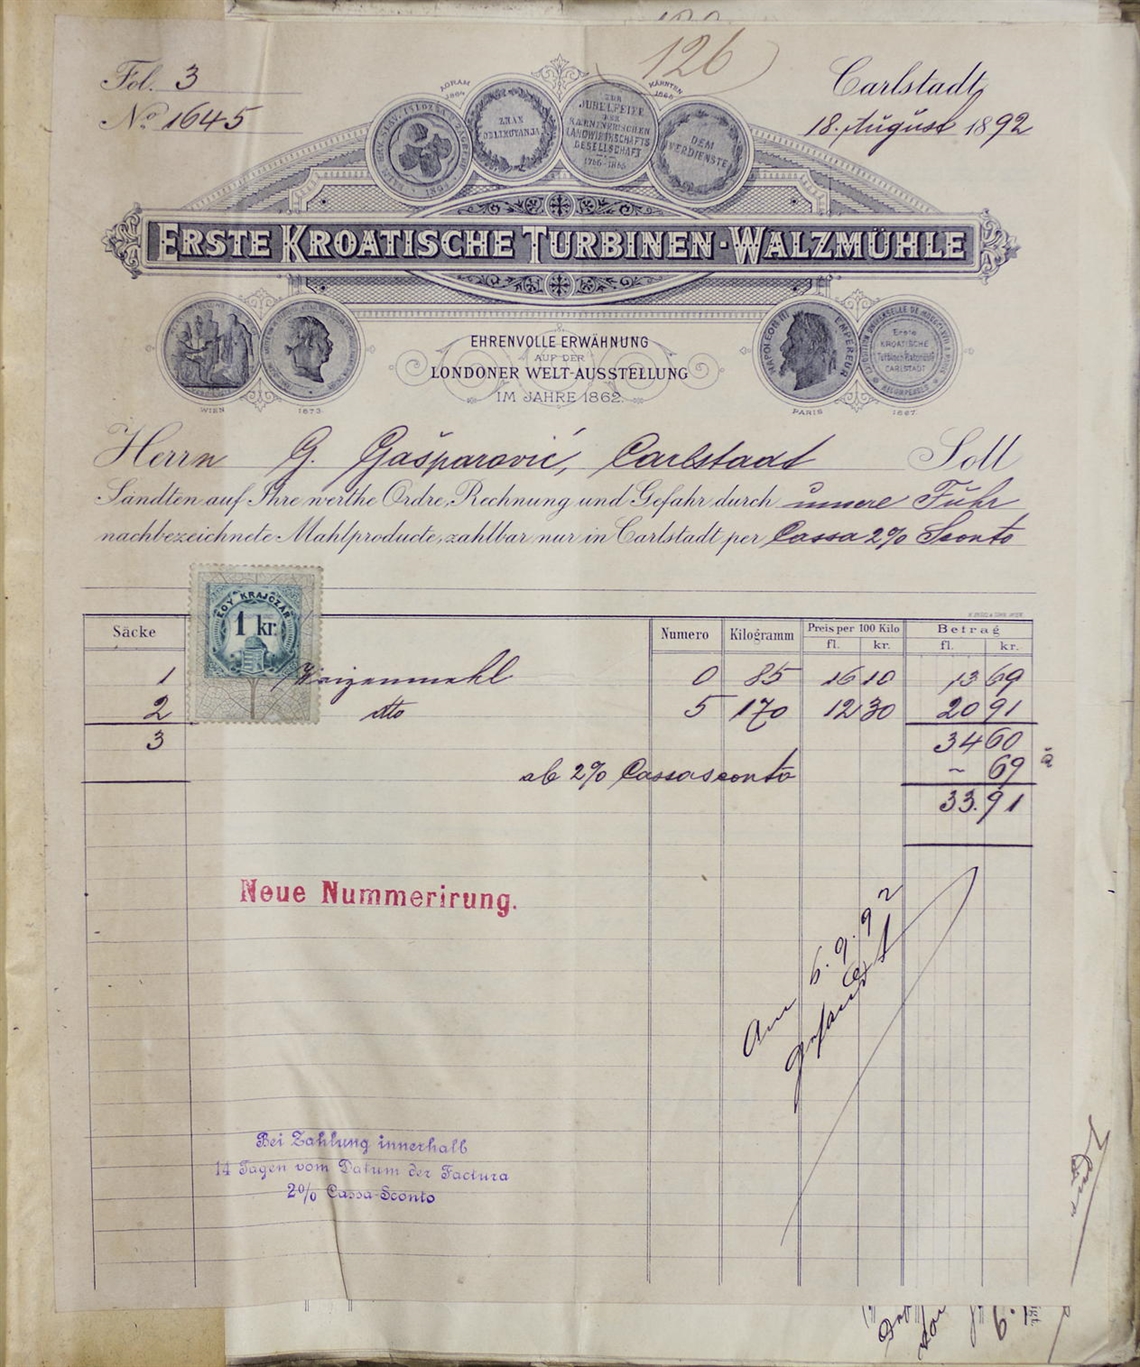 126
Fol. 3
No. 1645
Carlstadt,
18. August 1892
AGRAM
1864
KÄRNTEN
1865
ZUR
JUBELFEIER
DER
KÄRNTNERISCHEN
LANDWIRTHSCHAFTS
GESELLSCHAFT
1765-1865
DEM
VERDIENSTE
ERSTE KROATISCHE TURBINEN-WALZMÜHLE
EHRENVOLLE ERWÄHNUNG
AUF DER
LONDONER WELT-AUSSTELLUNG
IM JAHRE 1862.
WIEN 1873.
NAPOLEON III EMPEREUR
Erste
KROATISCHE
CARLSTADT
PARIS 1867
Herrn G. Gašparović, Carlstadt Soll
Sandten auf Ihre werthe Ordre, Rechnung und Gefahr durch unsere Fuhr
nachbezeichnete Mahlproducte, zahlbar nur in Carlstadt per Cassa 2% Sconto
EGY KRAJCZÁR
1 kr.
Säcke Numero Kilogramm Preis per 100 Kilo Betrag
fl. kr. fl. kr.
1 Weizenmehl 0 85 16 10 13 69
2 dto 5 170 12 30 20 91
3 34 60
ab 2% Cassasconto - 69
33.91
Neue Nummerirung.
Am 6.9.92
Bei Zahlung innerhalb
14 Tagen vom Datum der Factura
2% Cassa-Sconto